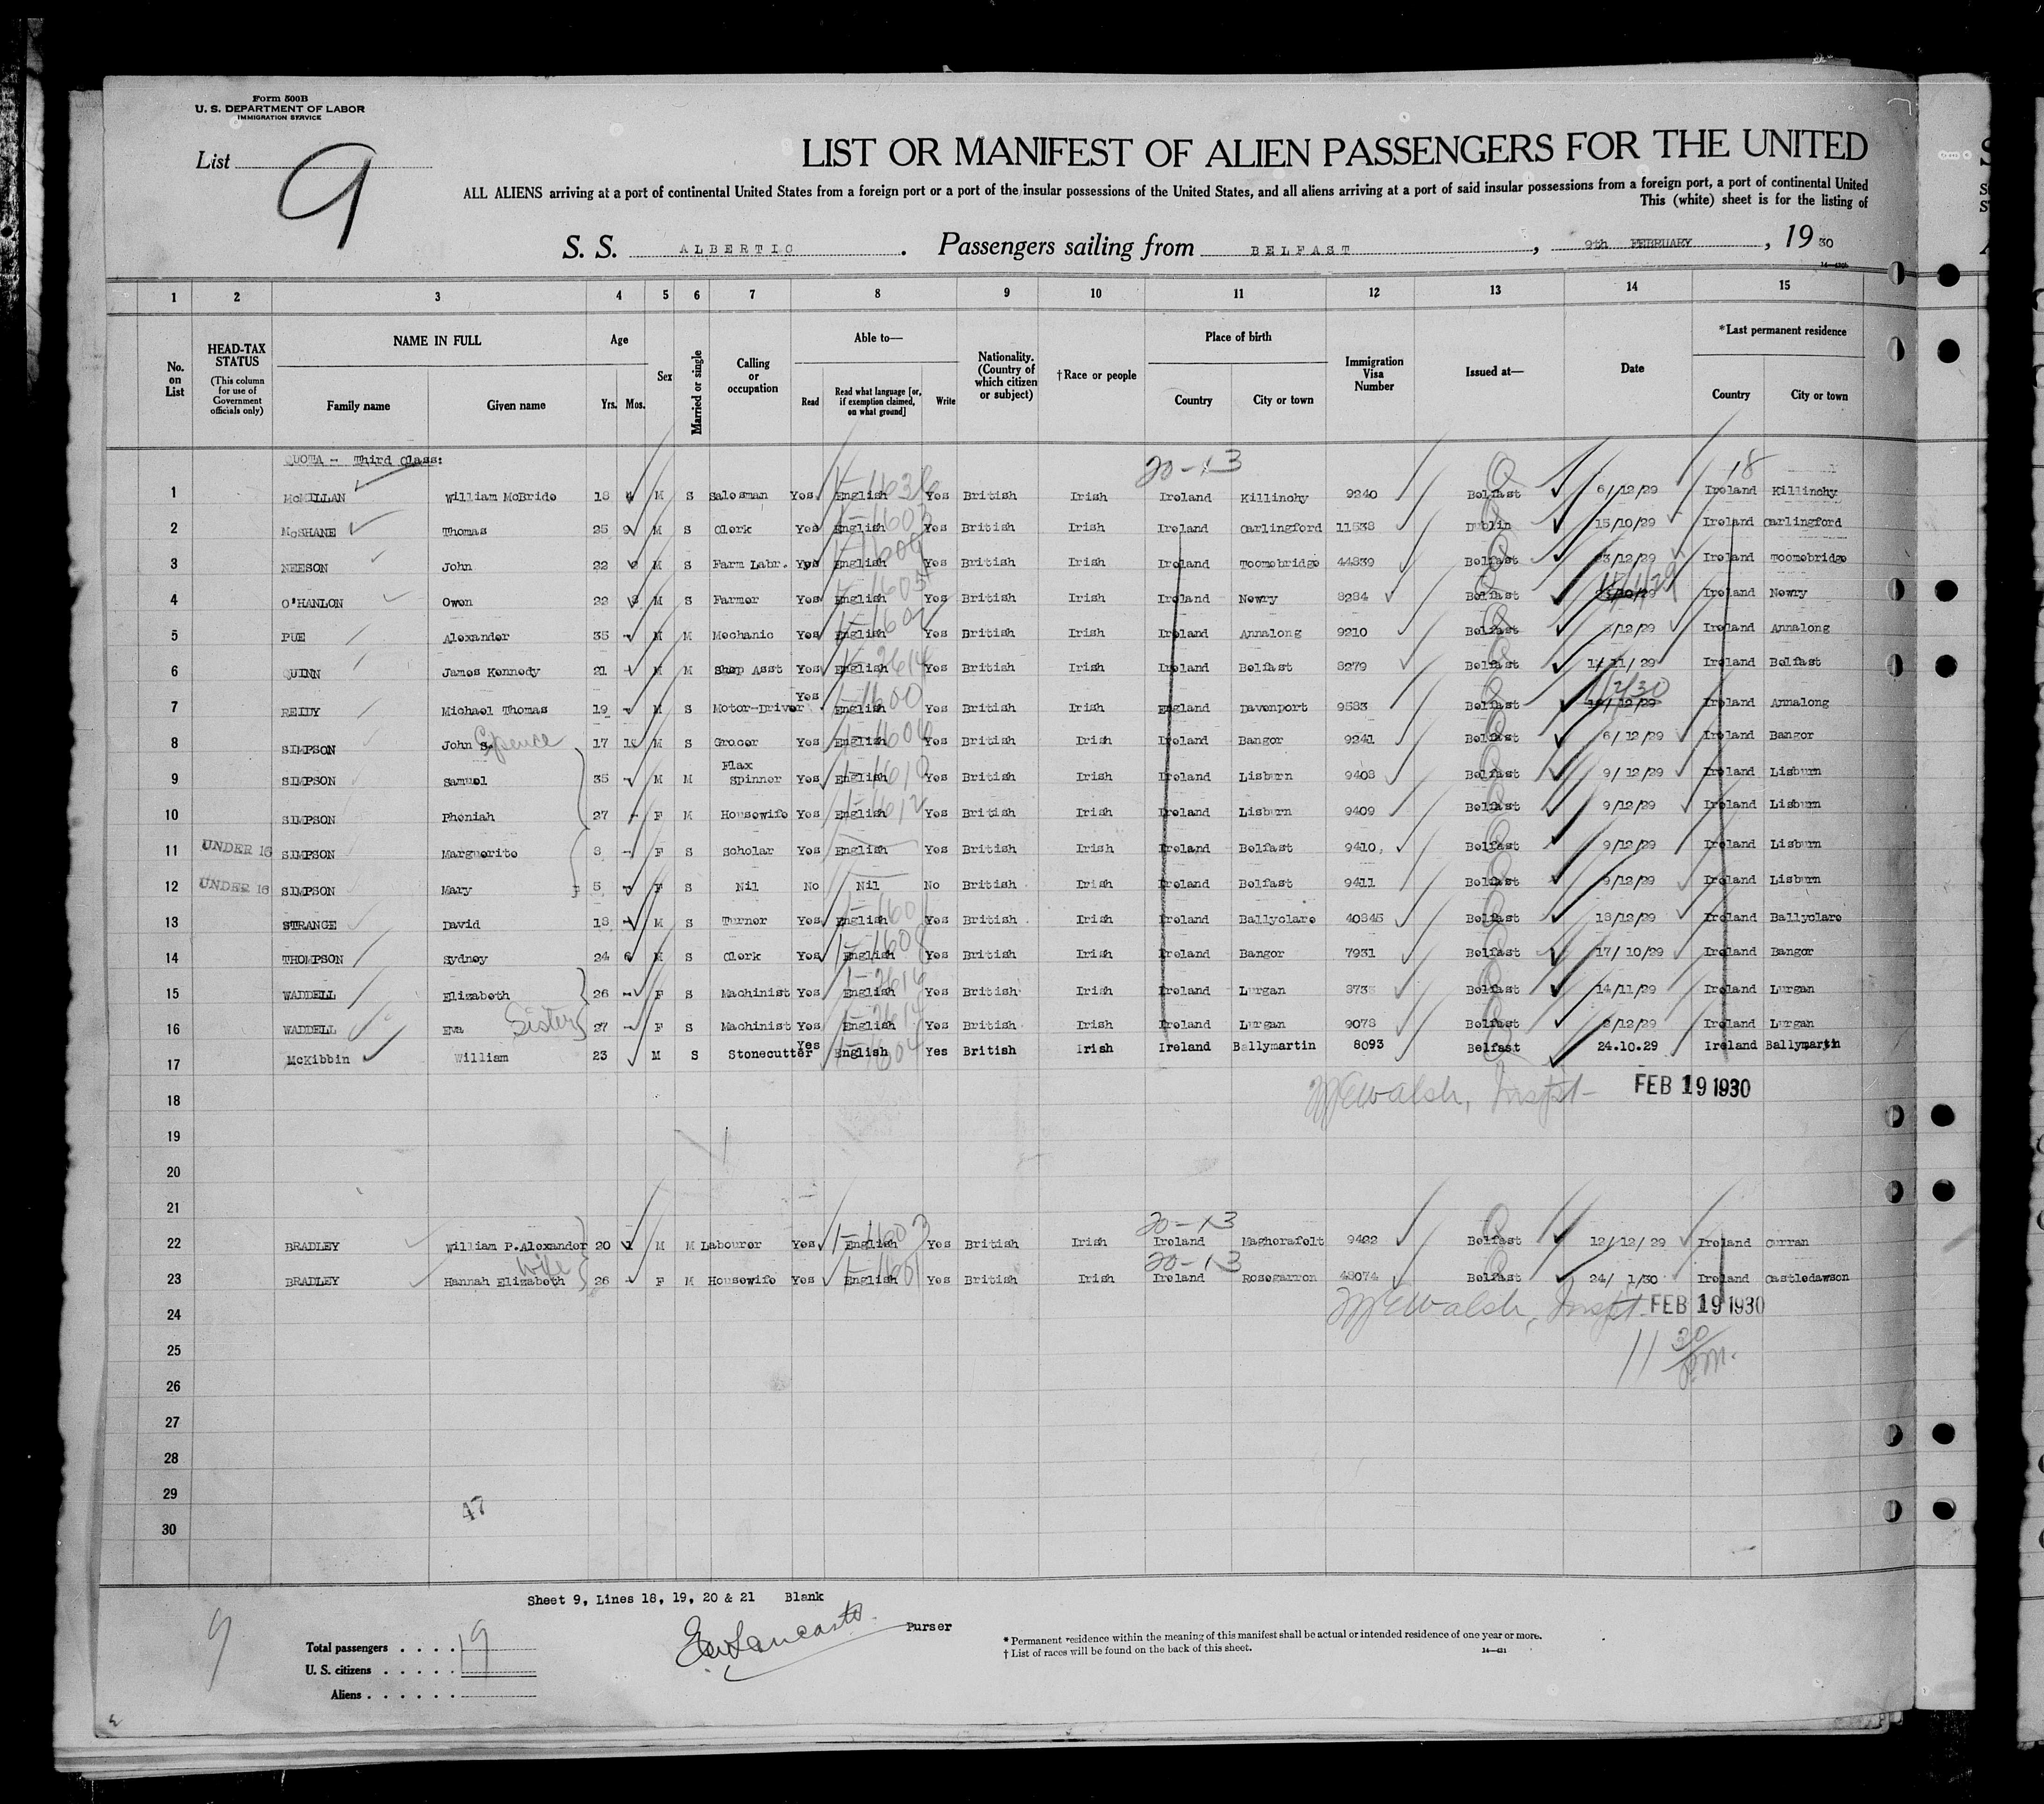 Form 500B
U. S. DEPARTMENT OF LABOR
IMMIGRATION SERVICE
List 9
LIST OR MANIFEST OF ALIEN PASSENGERS FOR THE UNITED
ALL ALIENS arriving at a port of continental United States from a foreign port or a port of the insular possessions of the United States, and all aliens arriving at a port of said insular possessions from a foreign port, a port of continental United
This (white) sheet is for the listing of
S. S. ALBERTIC. Passengers sailing from BELFAST, 9th FEBRUARY, 1930
1 2 3 4 5 6 7 8 9 10 11 12 13 14 15
No. on List
HEAD-TAX STATUS (This column for use of Government officials only)
NAME IN FULL Family name Given name
Age Yrs. Mos.
Sex
Married or single
Calling or occupation
Able to— Read Read what language [or, if exemption claimed, on what ground] Write
Nationality. (Country of which citizen or subject)
†Race or people
Place of birth Country City or town
Immigration Visa Number
Issued at—
Date
*Last permanent residence Country City or town
QUOTA - Third Class: 20-13 18
1 McMILLAN William McBride 18 M S Salesman Yes English Yes British Irish Ireland Killinchy 9240 Belfast 6/12/29 Ireland Killinchy
2 McSHANE Thomas 25 9 M S Clerk Yes English Yes British Irish Ireland Carlingford 11538 Dublin 15/10/29 Ireland Carlingford
3 NEESON John 22 M S Farm Labr. Yes English Yes British Irish Ireland Toomebridge 44839 Belfast 23/12/29 Ireland Toomebridge
4 O'HANLON Owen 22 M S Farmer Yes English Yes British Irish Ireland Newry 8284 Belfast Ireland Newry
5 PUE Alexander 35 - M M Mechanic Yes English Yes British Irish Ireland Annalong 9210 Belfast /12/29 Ireland Annalong
6 QUINN James Kennedy 21 - M M Shop Asst Yes English Yes British Irish Ireland Belfast 8279 Belfast 1/11/29 Ireland Belfast
7 REIDY Michael Thomas 19 - M S Motor-Driver Yes English Yes British Irish England Davenport 9583 Belfast Ireland Annalong
8 SIMPSON John S. Spence 17 M S Grocer Yes English Yes British Irish Ireland Bangor 9241 Belfast 6/12/29 Ireland Bangor
9 SIMPSON Samuel 35 - M M Flax Spinner Yes English Yes British Irish Ireland Lisburn 9408 Belfast 9/12/29 Ireland Lisburn
10 SIMPSON Pheniah 27 - F M Housewife Yes English Yes British Irish Ireland Lisburn 9409 Belfast 9/12/29 Ireland Lisburn
11 UNDER 16 SIMPSON Marguerite 8 - F S Scholar Yes English Yes British Irish Ireland Belfast 9410 Belfast 9/12/29 Ireland Lisburn
12 UNDER 16 SIMPSON Mary 5 - F S Nil No Nil No British Irish Ireland Belfast 9411 Belfast 9/12/29 Ireland Lisburn
13 STRANGE David 18 - M S Turner Yes English Yes British Irish Ireland Ballyclare 40845 Belfast 18/12/29 Ireland Ballyclare
14 THOMPSON Sydney 24 6 M S Clerk Yes English Yes British Irish Ireland Bangor 7931 Belfast 17/10/29 Ireland Bangor
15 WADDELL Elizabeth 26 - F S Machinist Yes English Yes British Irish Ireland Lurgan Belfast 14/11/29 Ireland Lurgan
16 WADDELL Eva Sister 27 - F S Machinist Yes English Yes British Irish Ireland Lurgan 9078 Belfast /12/29 Ireland Lurgan
17 McKibbin William 23 M S Stonecutter Yes English Yes British Irish Ireland Ballymartin 8093 Belfast 24.10.29 Ireland Ballymartin
18 Walsh, Inspt- FEB 19 1930
19
20
21
20-13
22 BRADLEY William P. Alexander 20 M M Labourer Yes English Yes British Irish Ireland Magherafelt 9422 Belfast 12/12/29 Ireland Curran
wife 20-13
23 BRADLEY Hannah Elizabeth 26 - F M Housewife Yes English Yes British Irish Ireland Rosegarron 48074 Belfast 24/1/30 Ireland Castledawson
24 Walsh, Inspt. FEB 19 1930
25 11 30
26
27
28
29
47
30
Sheet 9, Lines 18, 19, 20 & 21 Blank
Purser
9
Total passengers . . . . 19
U. S. citizens . . . . .
Aliens . . . . . .
* Permanent residence within the meaning of this manifest shall be actual or intended residence of one year or more.
† List of races will be found on the back of this sheet.